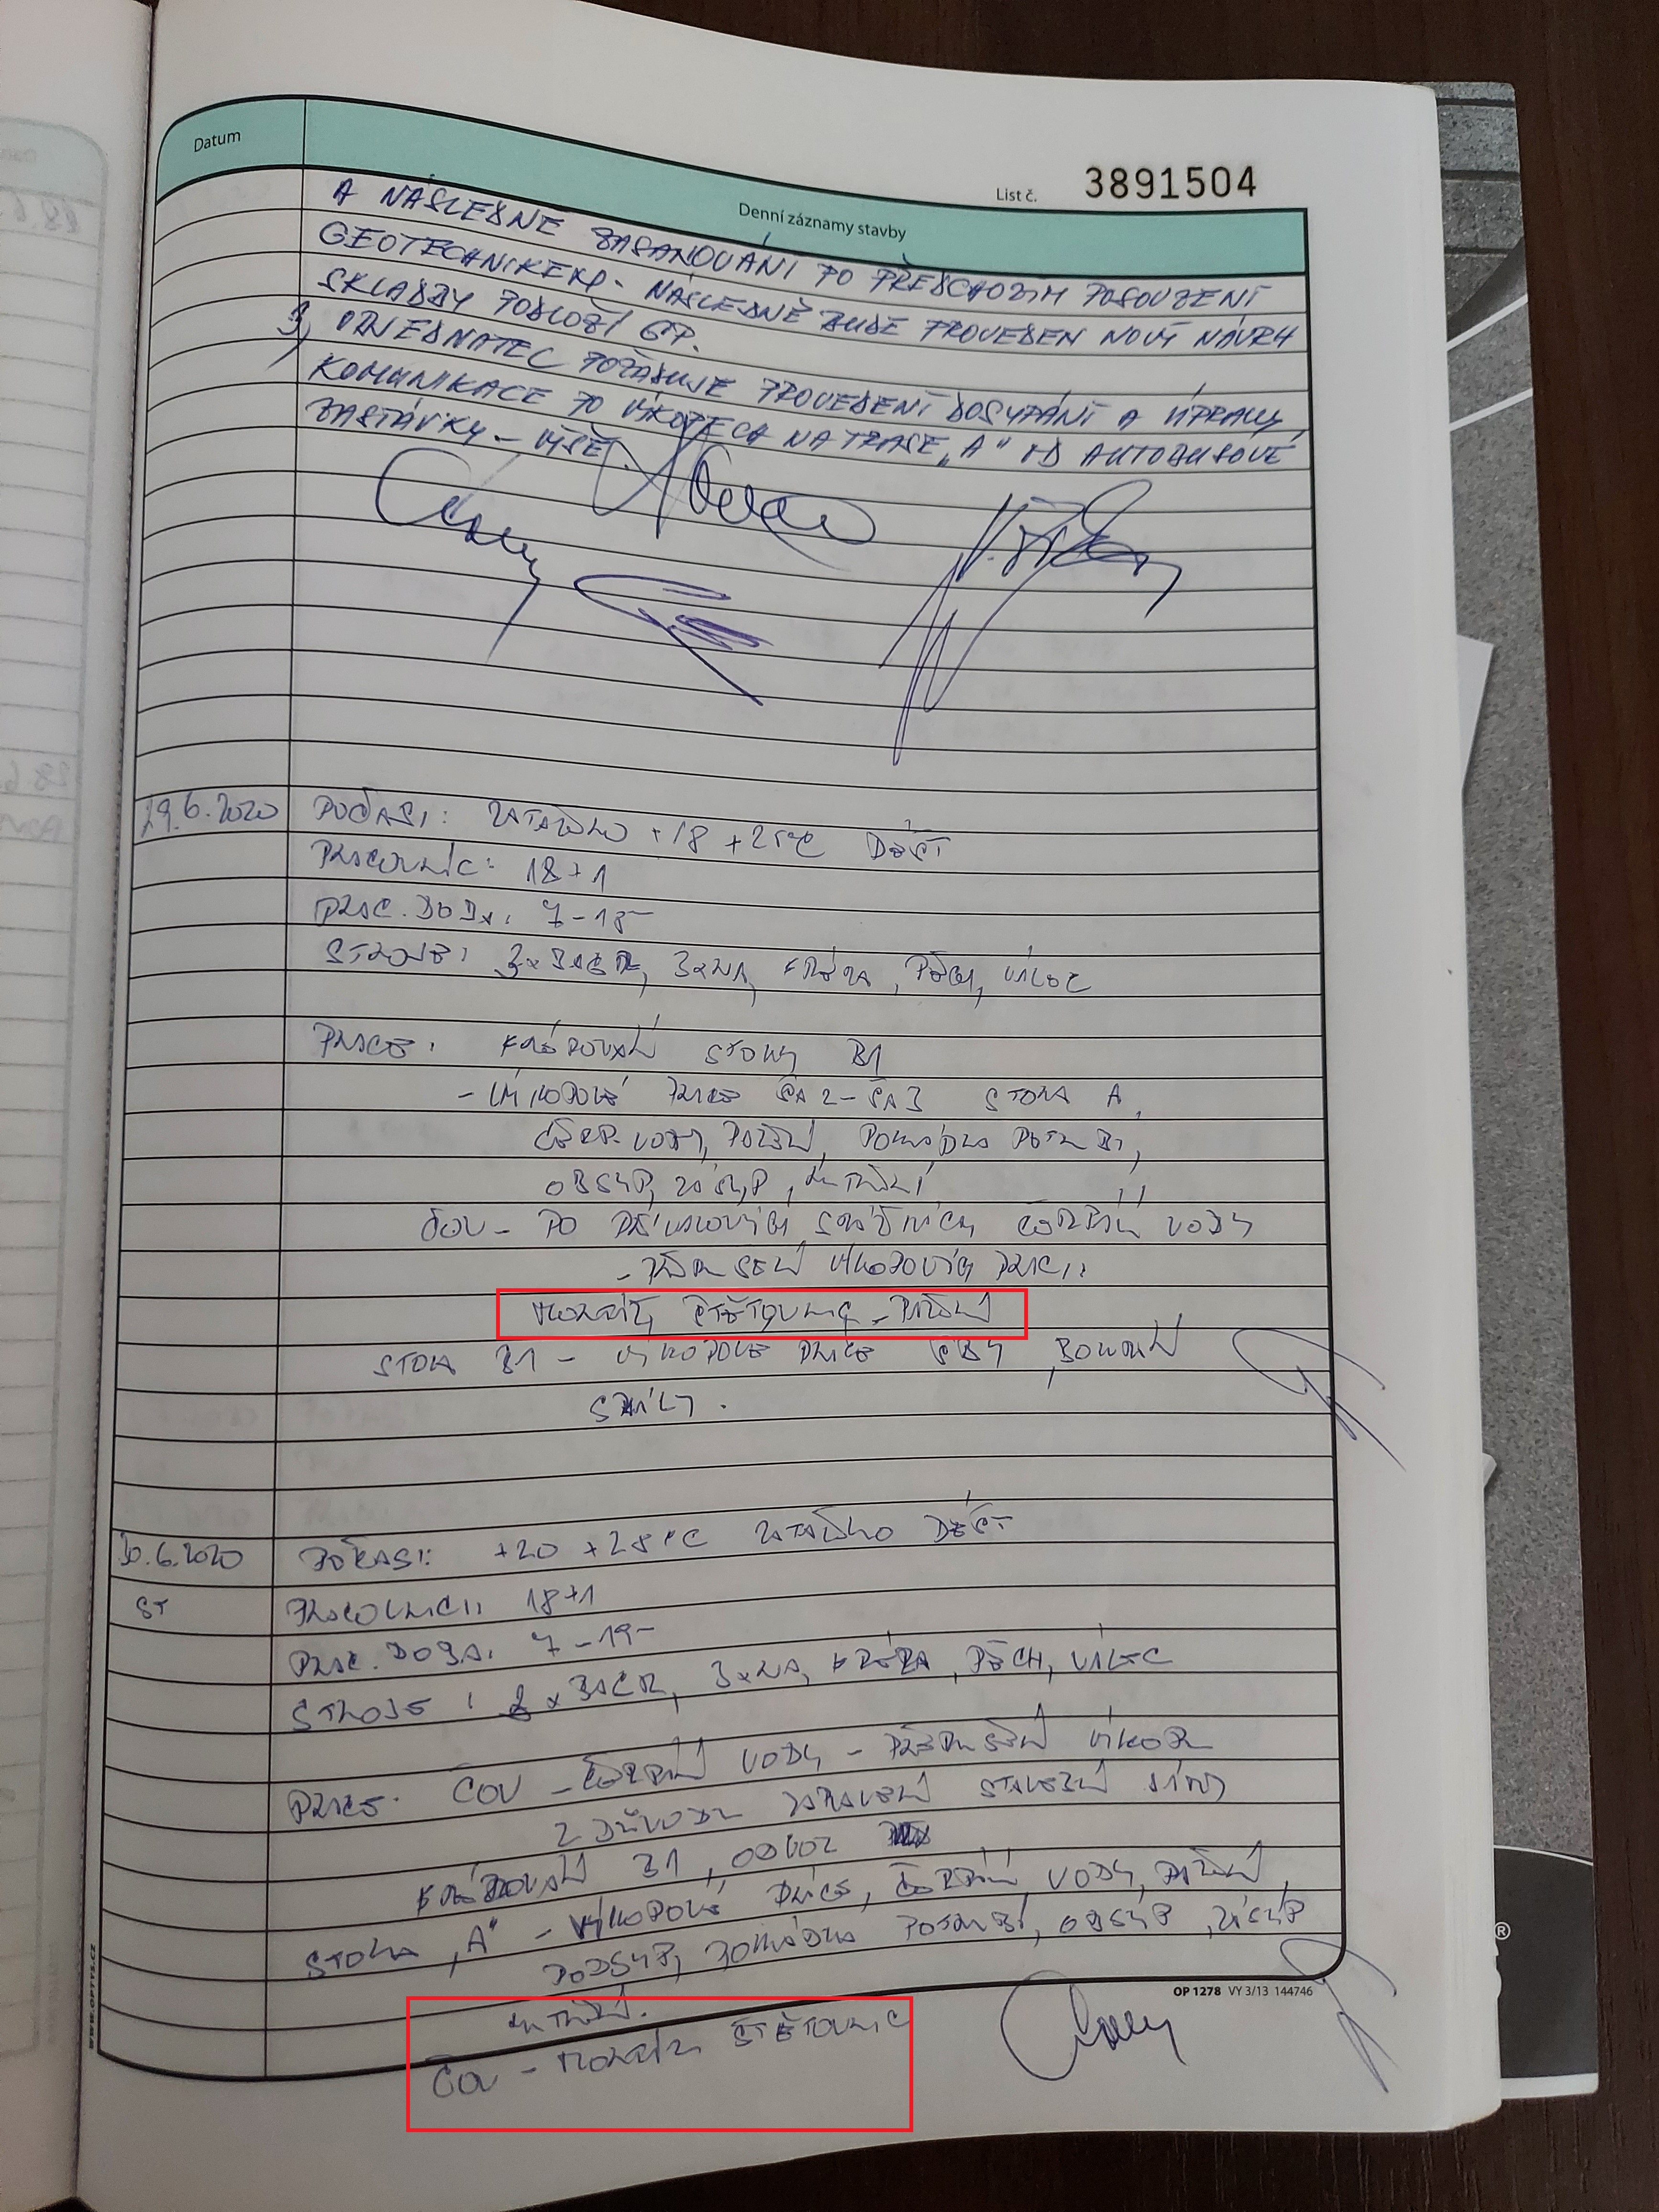 Datum
Denní záznamy stavby
List č. 3891504
A NÁSLEDNÉ ZASANOVÁNÍ PO PŘEDCHOZÍM POSOUZENÍ
GEOTECHNIKEM. NÁSLEDNĚ BUDE PROVEDEN NOVÝ NÁVRH
SKLADBY PODLOŽÍ
3, OBJEDNATEL POŽADUJE PROVEDENÍ DOSYPÁNÍ A ÚPRAVY
KOMUNIKACE PO VÝKOPECH NA TRASE "A" OD AUTOBUSOVÉ
ZASTÁVKY - VÝŠE.
29.6.2020 POČASÍ: ZATAŽENO +18 +25°C DÉŠŤ
PRACOVNÍCI: 18+1
PRAC. DOBA:
STROJE: 3x BAGR, 3xNA, FRÉZA, PĚCH, VÁLEC
PRÁCE: FRÉZOVÁNÍ STOKY B1
- VÝKOPOVÉ PRÁCE ŠA2-ŠA3 STOKA A,
ČERP. VODY, PAŽENÍ, POKLÁDKA POTRUBÍ,
OBSYP, ZÁSYP, HUTNĚNÍ
ČOV - PO PŘÍVALOVÝCH SRÁŽKÁCH ČERPÁNÍ VODY
- PŘERUŠENÍ VÝKOPOVÝCH PRACÍ,
MONTÁŽ ŠTĚTOVNIC - PAŽENÍ
STOKA B1 - VÝKOPOVÉ PRÁCE, BOURÁNÍ
SKÁLY.
30.6.2020 POČASÍ: +20 +28°C ZATAŽENO DÉŠŤ
PRACOVNÍCI: 18+1
PRAC. DOBA: 7-19
STROJE: x BAGR, 3xNA, FRÉZA, PĚCH, VÁLEC
PRÁCE: ČOV - ČERPÁNÍ VODY - PŘERUŠENÍ VÝKOPU
Z DŮVODU ZAPLAVENÍ STAVEBNÍ JÁMY
FRÉZOVÁNÍ B1, ODVOZ
STOKA "A" - VÝKOPOVÉ PRÁCE, ČERPÁNÍ VODY, PAŽENÍ,
PODSYP, POKLÁDKA POTRUBÍ, OBSYP, ZÁSYP
HUTNĚNÍ.
ČOV - MONTÁŽ ŠTĚTOVNIC
OP 1278 VY 3/13 144746
WWW.OPTYS.CZ